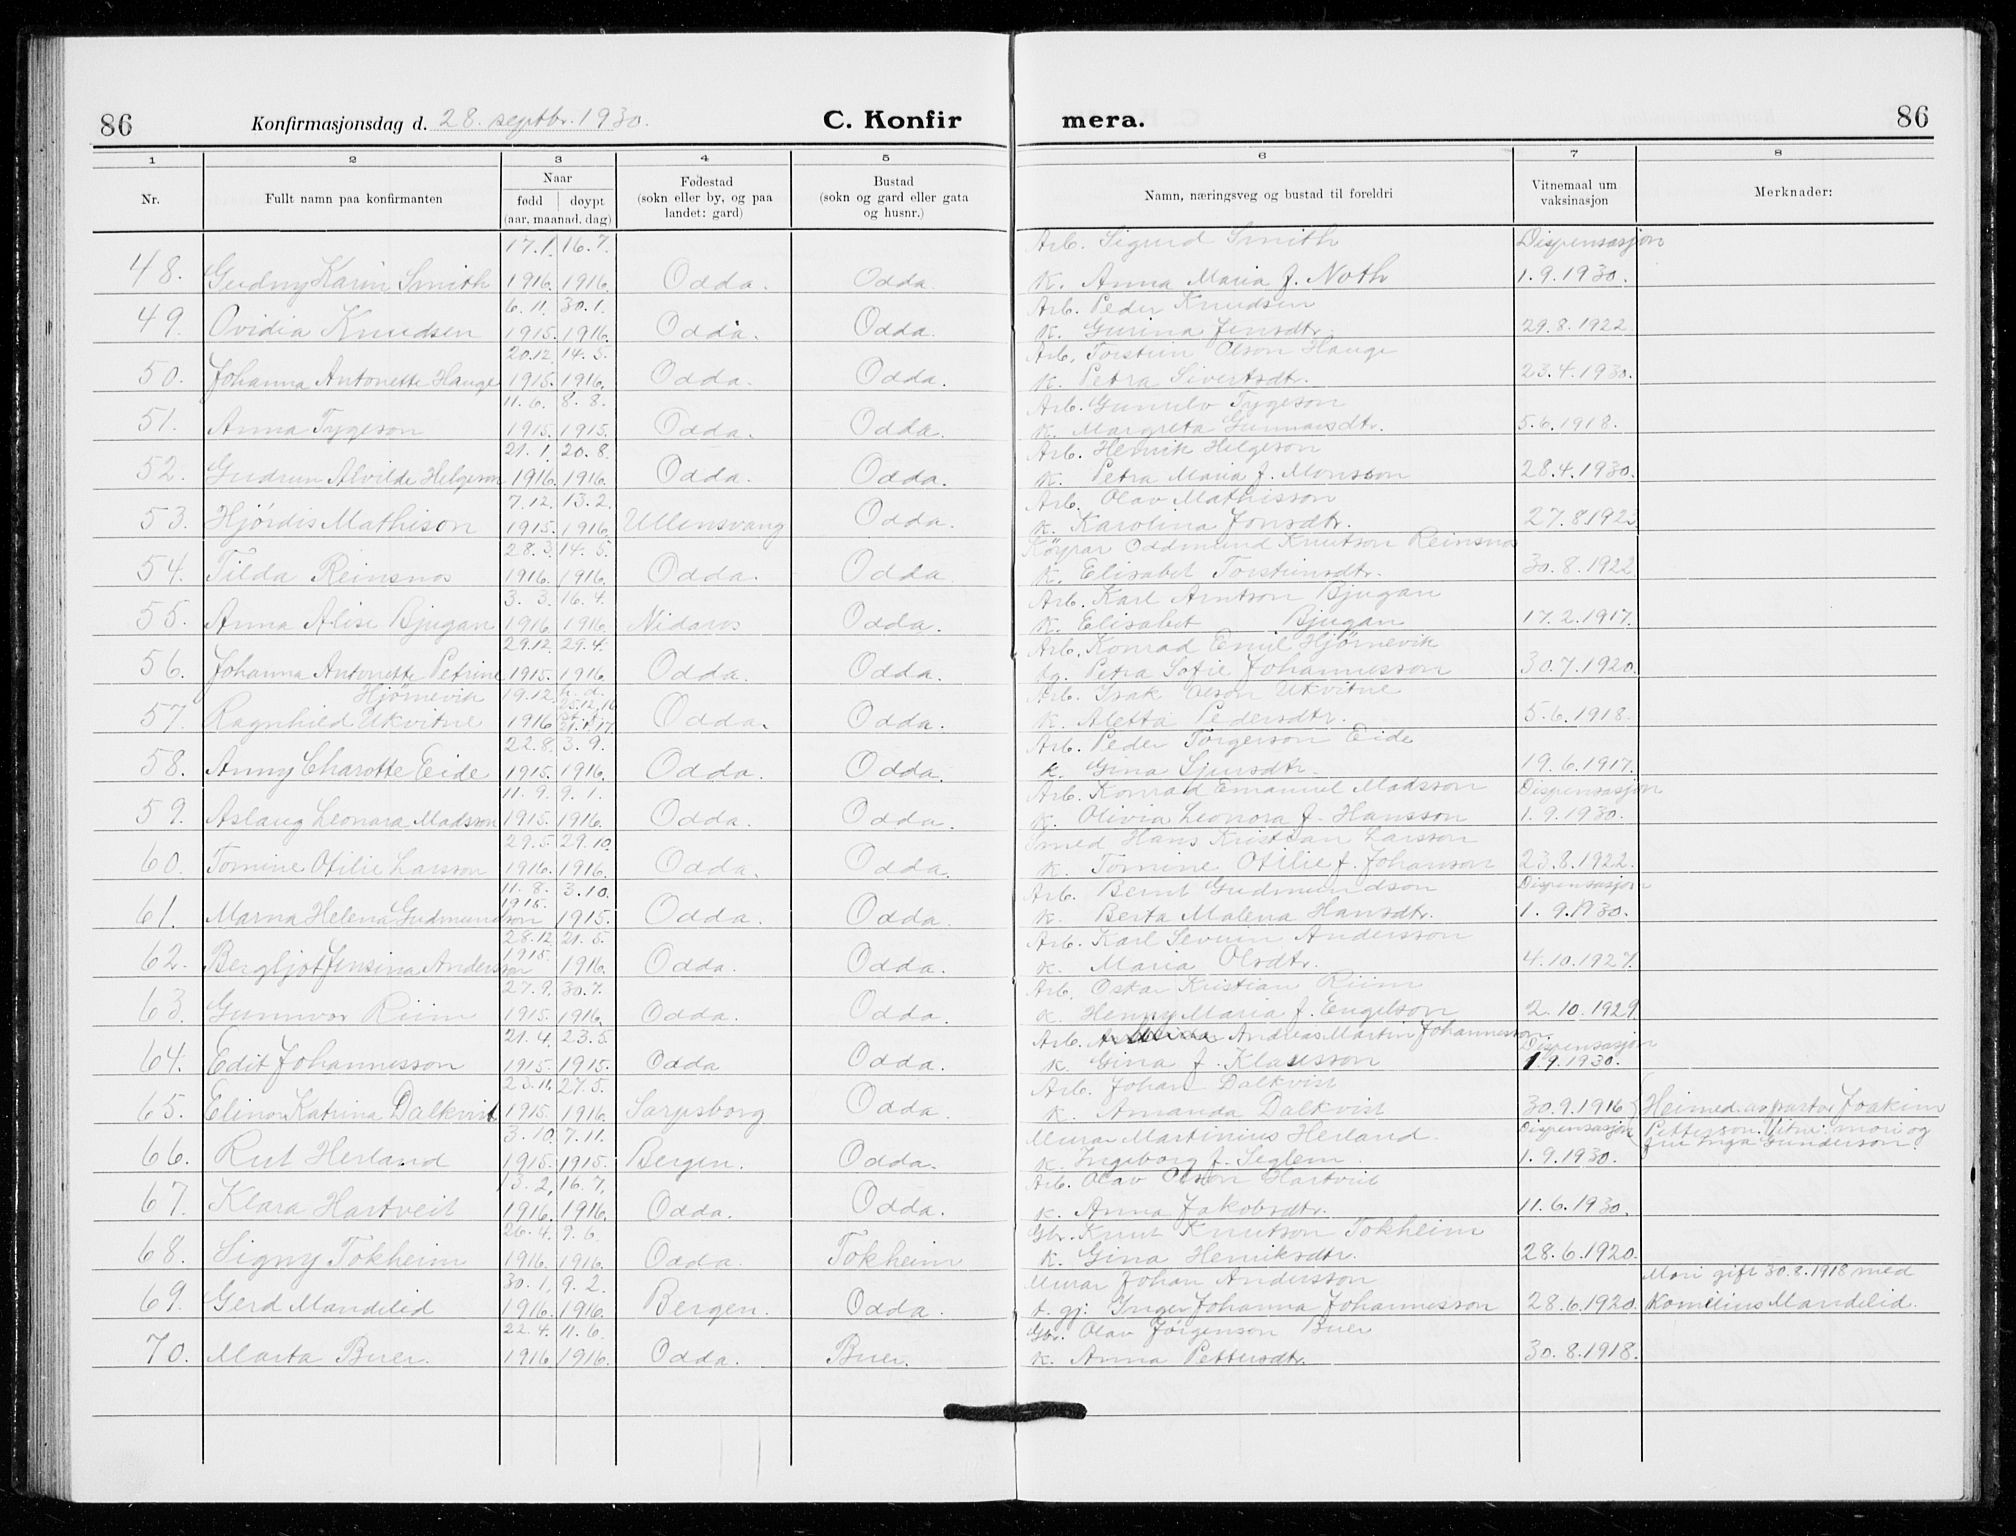 86 Konfirmasjonsdag d. 28. septbr. 1930. C. Konfirmera. 86
1 2 3 4 5 6 7 8
Nr. Fullt namn paa konfirmanten Naar født døypt (aar, maanad, dag) Fødestad (sokn eller by, og paa landet: gard) Bustad (sokn og gard eller gata og husnr.) Namn, næringsveg og bustad til foreldri Vitnemaal um vaksinasjon Merknader:
17.1. 16.7. Arb. Sigurd Smith Dispensasjon
48. Gudny Karin Smith 1916. 1916. Odda. Odda. K. Anna Maria f. Noth 1.9.1930.
6.11. 30.1. Arb. Peder Knudsen
49. Ovidia Knudsen 1915. 1916. Odda. Odda. K. Gurina Jensdtr. 29.8.1922
20.12. 14.5. Arb. Torstein Olson Hauge
50. Johanna Antonette Hauge 1915. 1916. Odda. Odda. K. Petra Sivertsdtr. 23.4.1930.
11.6. 8.8. Arb. Gunulv Tygeson
51. Anna Tygeson 1915. 1915. Odda. Odda. K. Margreta Gunnarsdtr. 5.6.1918.
21.1. 20.8. Arb. Henrik Helgeson
52. Gudrun Alvilde Helgeson 1916. 1916. Odda. Odda. K. Petra Maria f. Monsson 28.4.1930.
7.12. 13.2. Arb. Olav Mathisson
53. Hjørdis Mathison 1915. 1916. Ullensvang Odda. K. Karolina Jonsdtr. 27.8.1922
28.3. 14.5. Køyrar Oddmund Knutson Reinsnos
54. Tilda Reinsnos 1916. 1916. Odda. Odda. K. Elisabet Torsteinsdtr. 30.8.1922
3.3. 16.4. Arb. Karl Arntson Bjugan
55. Anna Alise Bjugan 1916. 1916. Nidaros Odda. K. Elisabet Bjugan 17.2.1917.
29.12. 29.4. Arb. Konrad Emil Hjørnevik
56. Johanna Antonette Petrine 1915. 1916. Odda. Odda. Petra Sofie Johannesson 30.7.1920.
Hjørnevik 19.12. h.d. 25.12.16 Arb. Isak Olson Ukvitne
57. Ragnhild Ukvitne 1916 21.1.17 Odda. Odda. K. Aletta Pedersdtr. 5.6.1918.
22.8. 3.9. Arb. Peder Torgerson Eide
58. Anny Charotte Eide 1915. 1916. Odda. Odda. K. Gina Sjursdtr. 19.6.1917.
11.9. 9.1. Arb. Konrad Emanuel Madsson Dispensasjon
59. Aslaug Leonara Madsson 1915. 1916. Odda. Odda. K. Olivia Leonora f. Hansson 1.9.1930.
29.5. 29.10. Smed Hans Kristian Larsson
60. Tomine Otilie Larsson 1916. 1916. Odda. Odda. K. Tomine Otilie f. Johanson 23.8.1922.
11.8. 3.10. Arb. Bernt Gudmundson Dispensasjon
61. Marna Helena Gudmundson 1915. 1915. Odda. Odda. K. Berta Malena Hansdtr. 1.9.1930.
28.12. 21.5. Arb. Karl Severin Andersson
62. Bergljot Jensina Anderson 1915. 1916. Odda. Odda. K. Maria Olsdtr. 4.10.1927.
27.9. 30.7. Arb. Oskar Kristian Riim
63. Gunnvor Riim 1915. 1916. Odda. Odda. K. Henny Maria f. Engelson 2.10.1929
21.4. 23.5. Arb. Andreas Martin Johannesson Dispensasjon
64. Edit Johannesson 1915. 1915. Odda Odda. K. Gina f. Klausson 1.9.1930.
23.11. 27.5. Arb. Johan Dalkvist
65. Elinor Katrina Dalkvist 1915. 1916. Sarpsborg Odda. K. Amanda Dalkvist 30.9.1916 Heimed. av pastor Joakim
3.10. 7.11. Murar Martinius Herland. Dispensasjon Petterson. Vitni: mori og
66. Rut Herland 1915. 1915. Bergen. Odda. K. Ingeborg f. Seglem. 1.9.1930. fru Inga Gunderson.
13.2. 16.7. Arb. Olav Olson Hartveit
67. Klara Hartveit 1916. 1916. Odda. Odda. K. Anna Jakobsdtr. 11.6.1930.
26.4. 9.6. Gbr. Knut Knutson Tokheim
68. Signy Tokheim 1916. 1916. Odda. Tokheim K. Gina Henriksdtr. 28.6.1920.
30.1. 9.2. Murar Johan Andersson Mori gift 30.8.1918 med
69. Gerd Mandelid 1916. 1916. Bergen. Odda. t. gj: Inger Johanna Johannesson 28.6.1920. Kornelius Mandelid.
22.4. 11.6. Gbr. Olav Jørgenson Buer
70. Marta Buer. 1916 1916. Odda. Buer. K. Anna Pettersdtr. 30.8.1918.